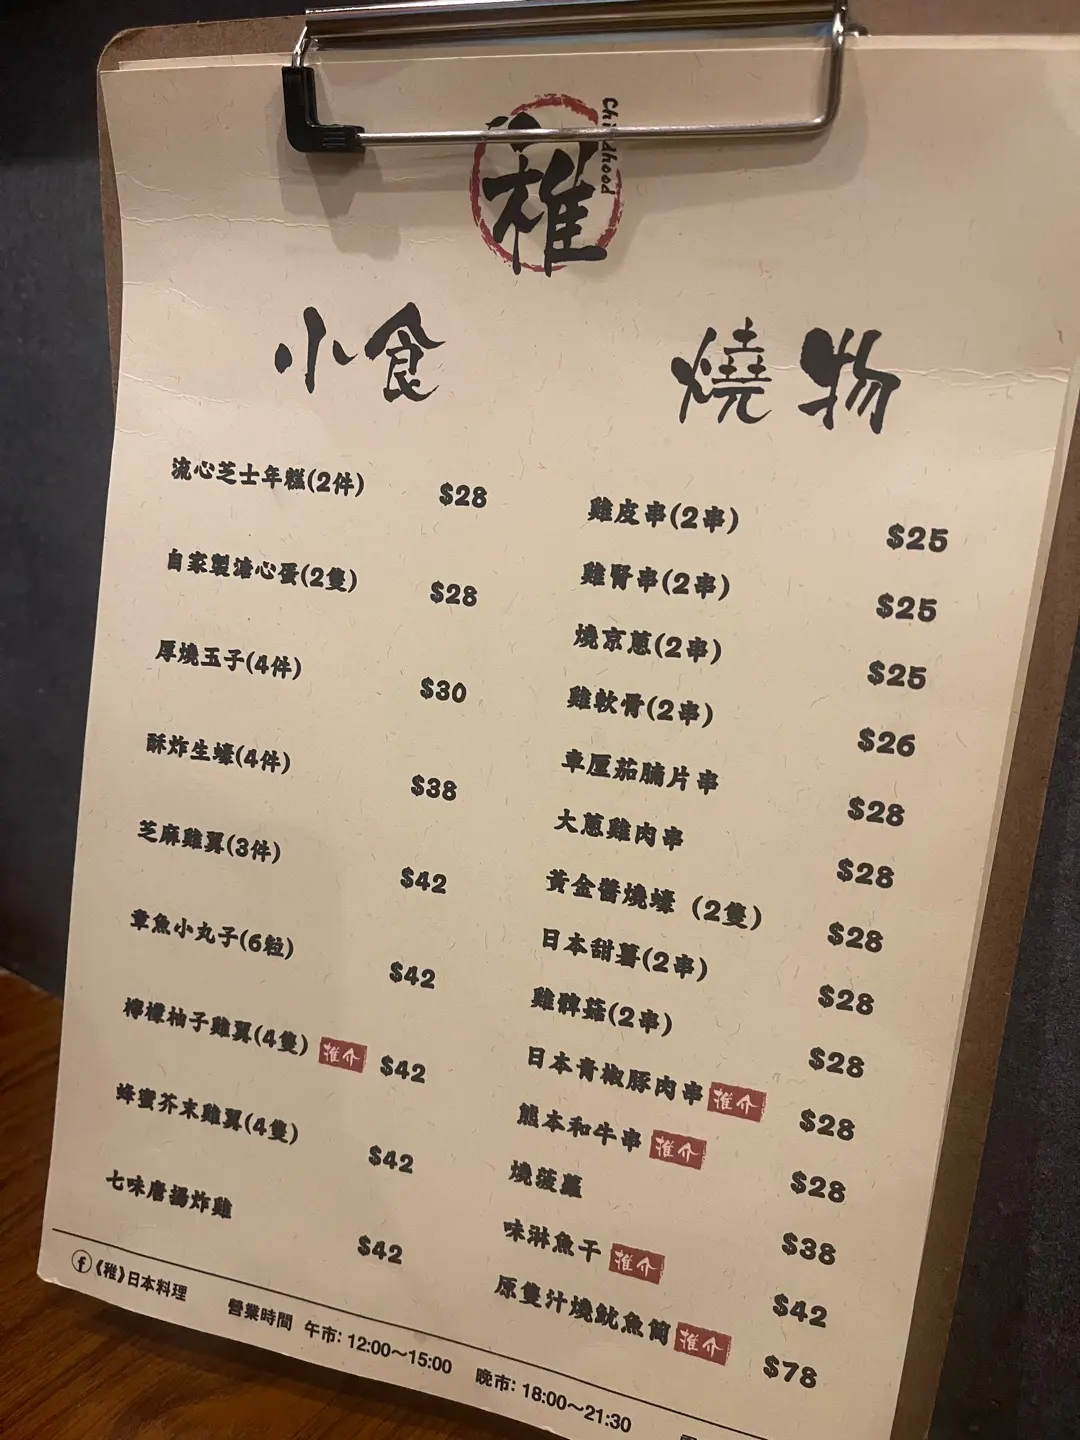 稚
Childhood
小食
流心芝士年糕(2件) $28
自家製溏心蛋(2隻) $28
厚燒玉子(4件) $30
酥炸生蠔(4件) $38
芝麻雞翼(3件) $42
章魚小丸子(6粒) $42
檸檬柚子雞翼(4隻) 推介 $42
蜂蜜芥末雞翼(4隻) $42
七味唐揚炸雞 $42
燒物
雞皮串(2串) $25
雞腎串(2串) $25
燒京蔥(2串) $25
雞軟骨(2串) $26
車厘茄腩片串 $28
大蔥雞肉串 $28
黃金醬燒蠔 (2隻) $28
日本甜薯(2串) $28
雞髀菇(2串) $28
日本青椒豚肉串 推介 $28
熊本和牛串 推介 $28
燒菠蘿 $38
味淋魚干 推介 $42
原隻汁燒魷魚筒 推介 $78
《稚》日本料理 營業時間 午市: 12:00～15:00 晚市: 18:00～21:30